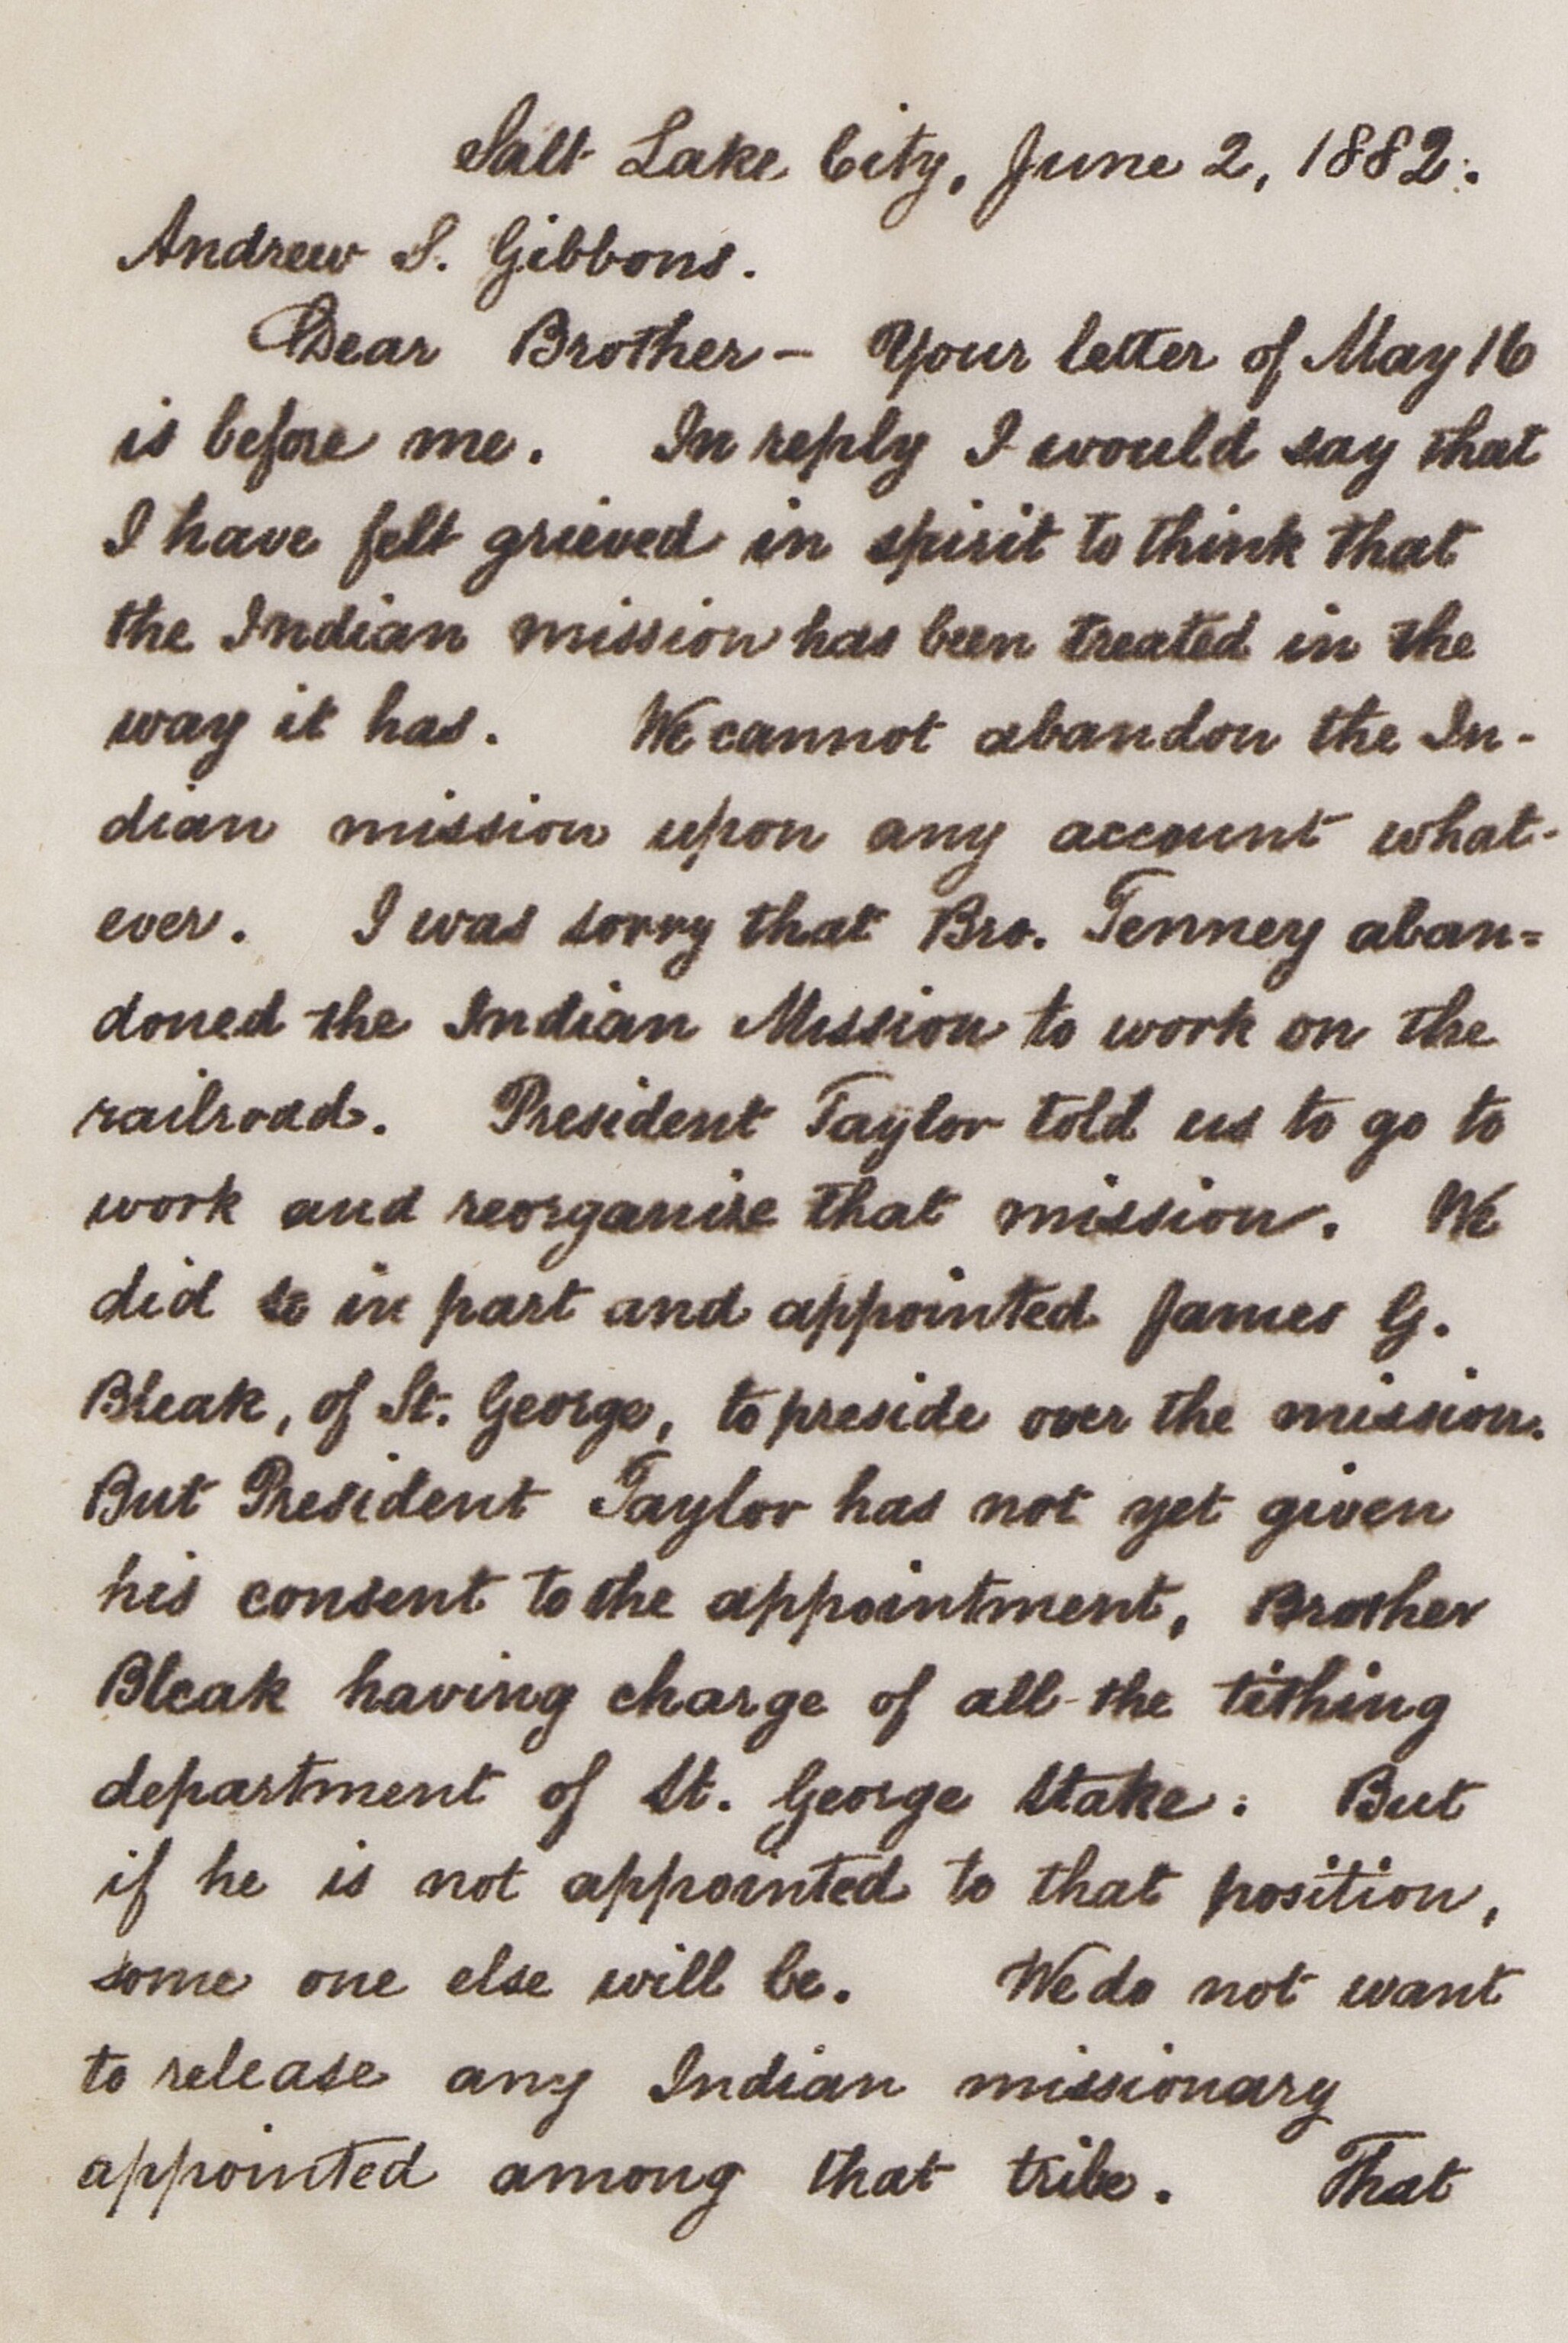 Salt Lake City, June 2, 1882.
Andrew S. Gibbons.
Dear Brother – Your letter of May 16
is before me. In reply I would say that
I have felt grieved in spirit to think that
the Indian mission has been treated in the
way it has. We cannot abandon the In-
dian mission upon any account what-
ever. I was sorry that Bro. Tenney aban=
doned the Indian Mission to work on the
railroad. President Taylor told us to go to
work and reorganize that mission. We
did so in part and appointed James G.
Bleak, of St. George, to preside over the mission.
But President Taylor has not yet given
his consent to the appointment, Brother
Bleak having charge of all the tithing
department of St. George Stake. But
if he is not appointed to that position,
some one else will be. We do not want
to release any Indian missionary
appointed among that tribe. That